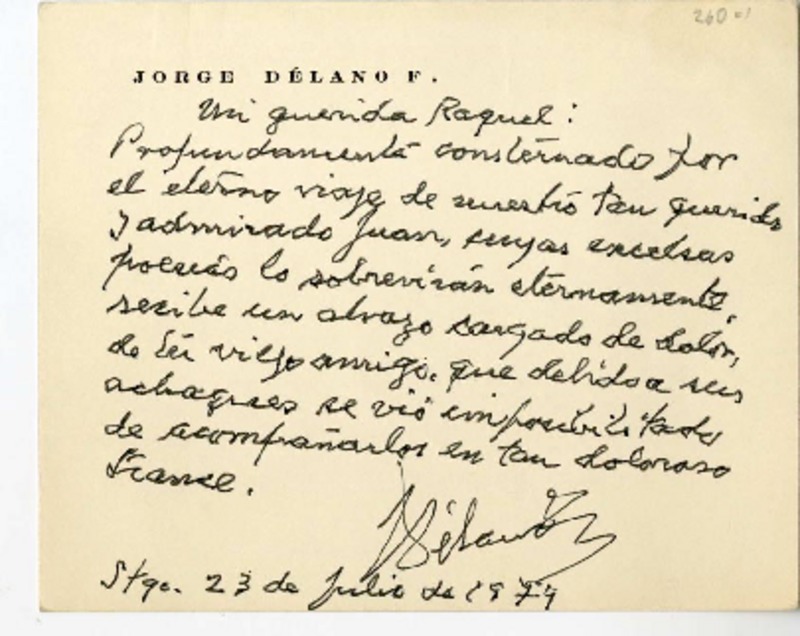 260
JORGE DÉLANO F.
Mi querida Raquel:
Profundamente consternado por
el eterno viaje de nuestro tan querido
y admirado Juan, cuyas excelsas
poesías lo sobrevirán eternamente,
recibe un abrazo cargado de dolor,
de tu viejo amigo, que debido a sus
achaques se vió imposibilitado
de acompañarlos en tan doloroso
trance.
JDélano
Stgo. 23 de Julio de 1979